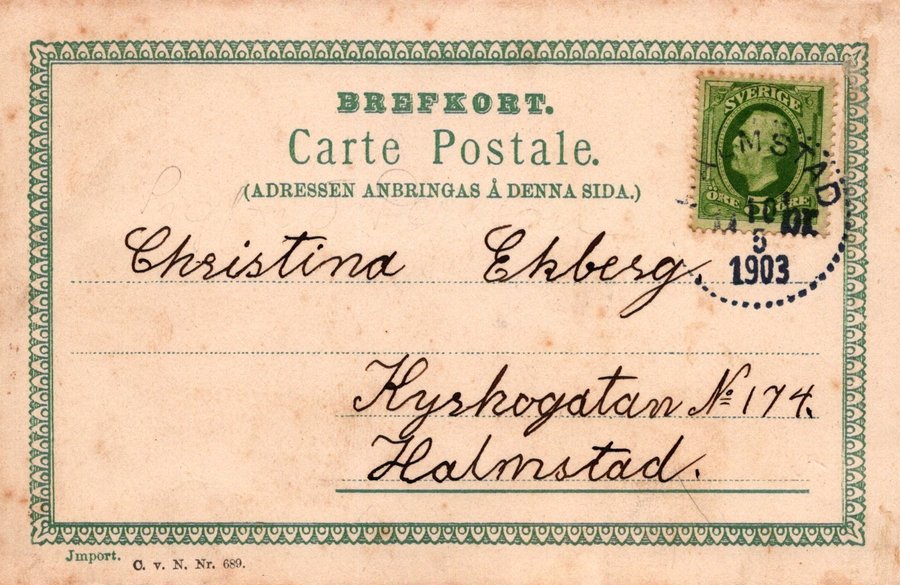 BREFKORT.
Carte Postale.
(ADRESSEN ANBRINGAS Å DENNA SIDA.)
SVERIGE
ÖRE 5 ÖRE
HALMSTAD
5
1903
Christina Ekberg
Kyrkogatan № 174.
Halmstad.
Jmport.
C. v. N. Nr. 689.